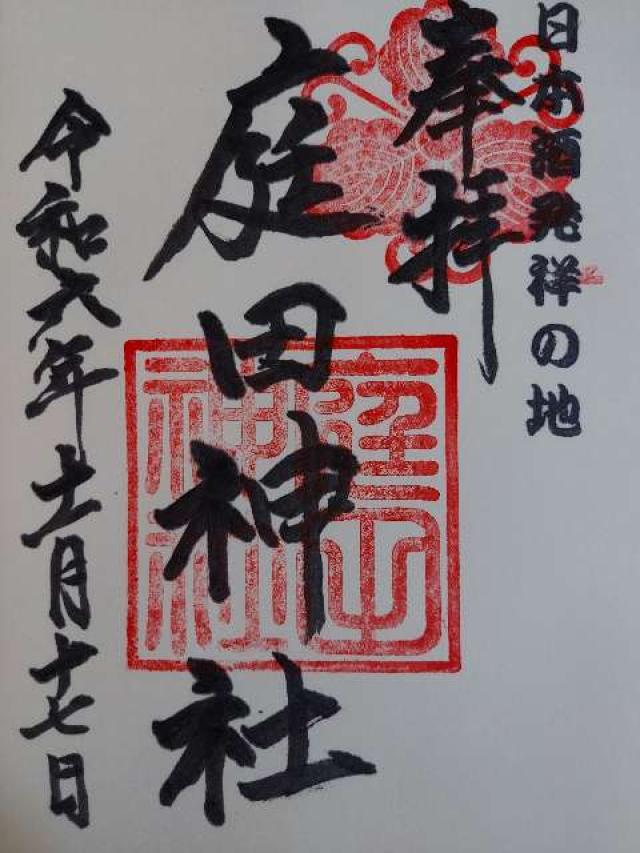 日本酒発祥の地
奉拝
庭田神社
令和六年十一月十七日